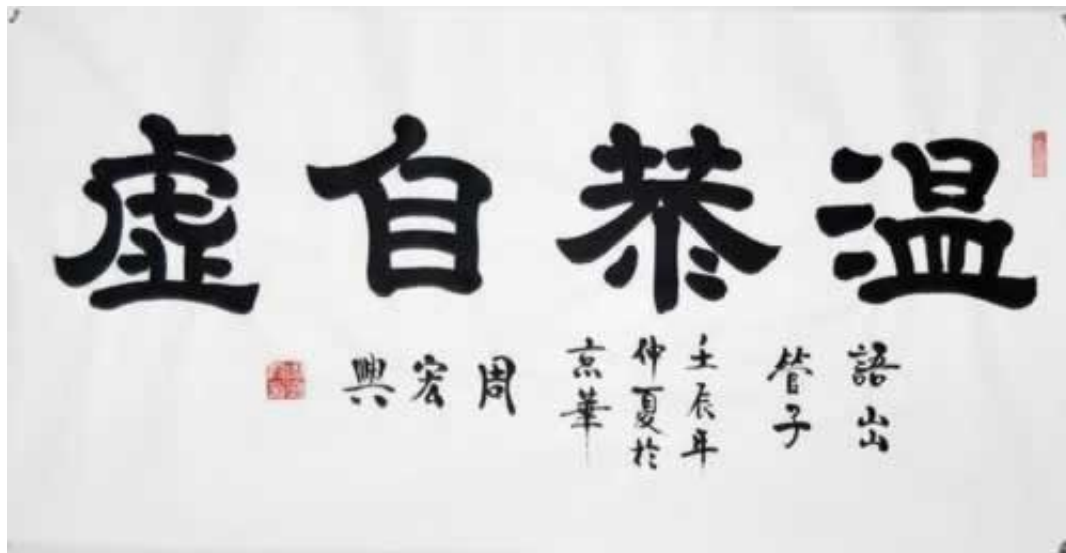 溫恭自虛
語出
管子
壬辰年
仲夏於
京華
周
宏
興